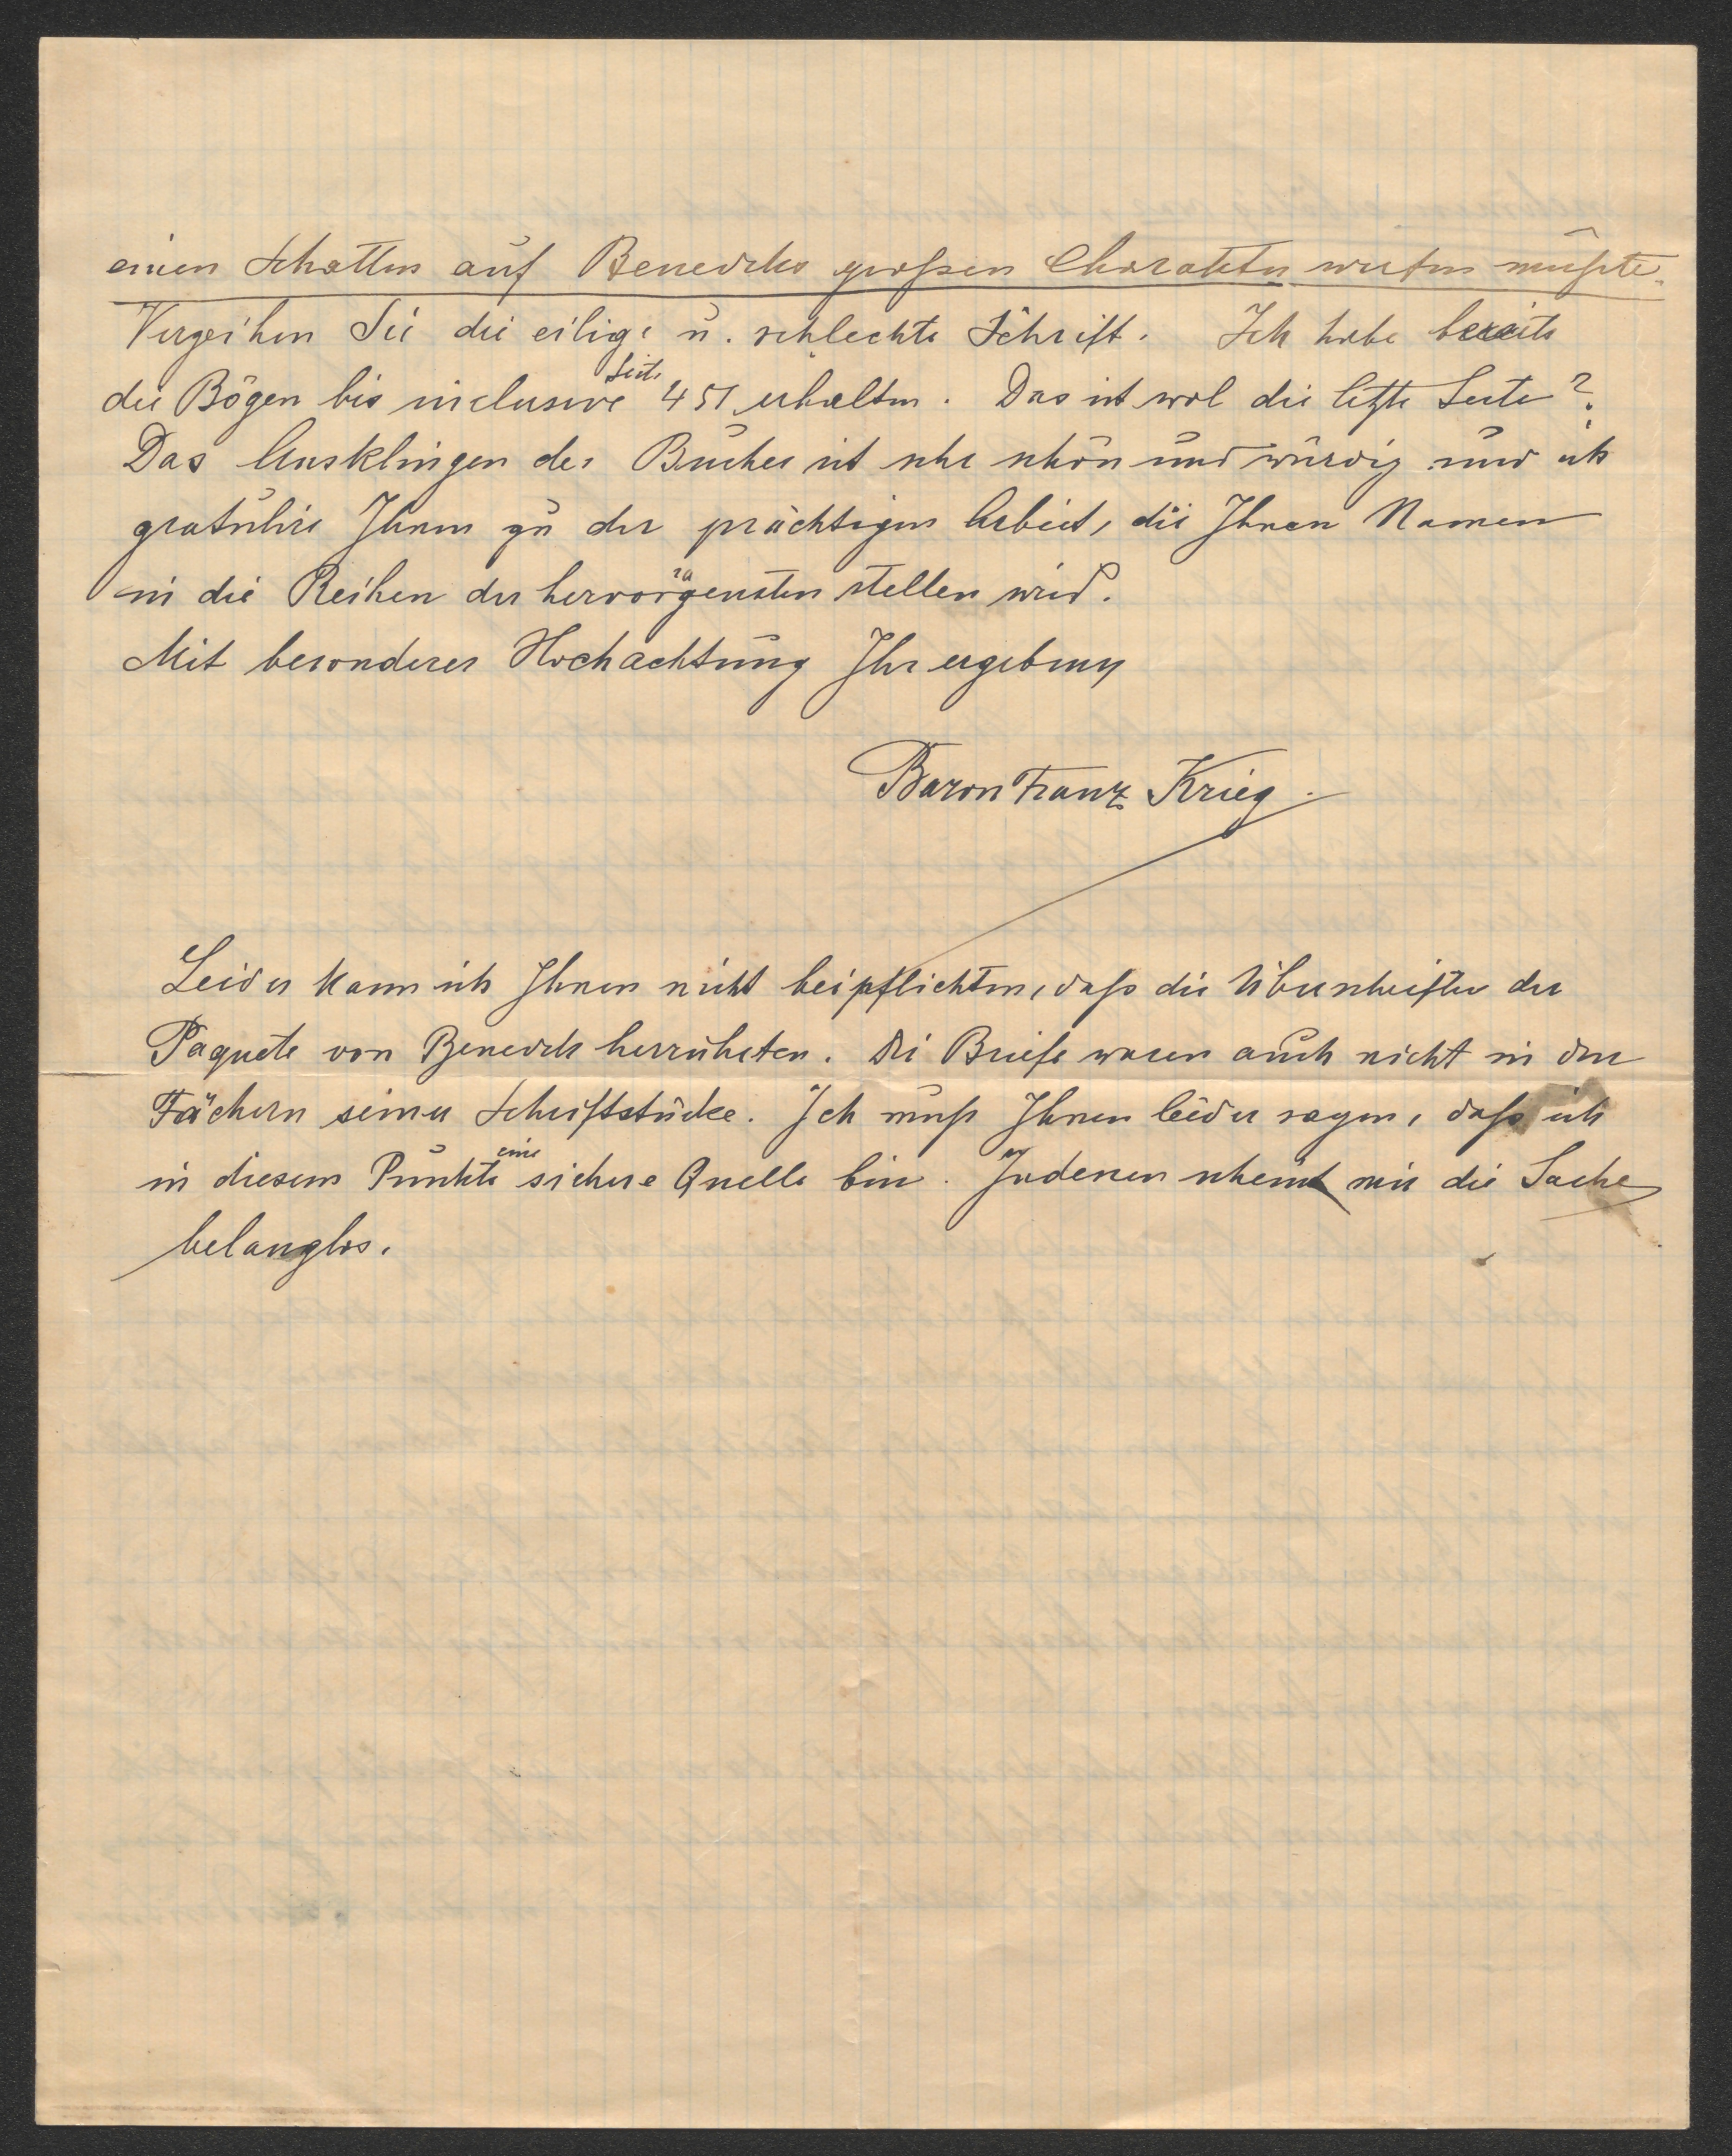 einen Schatten auf Benedeks großen Charakter werfen müßte.
Verzeihen Sie die eilige u. schlechte Schrift. Ich habe bereits
die Bögen bis inclusive Seite 451 erhalten. Das ist wol die letzte Seite?
Das Ausklingen des Buches ist sehr schön und würdig und ich
gratulire Ihnen zu der prächtigen Arbeit, die Ihren Namen
in die Reihen der hervorragensten stellen wird.
Mit besonderer Hochachtung Ihr ergebener
Baron Franz Krieg.
Leider kann ich Ihnen nicht beipflichten, daß die Überschriften der
Paquete von Benedek herrührten. Die Briefe waren auch nicht in den
Fächern seiner Schriftstücke. Ich muß Ihnen leider sagen, daß ich
in diesem Punkte eine sichere Quelle bin. scheint mir die Sache
belanglos.